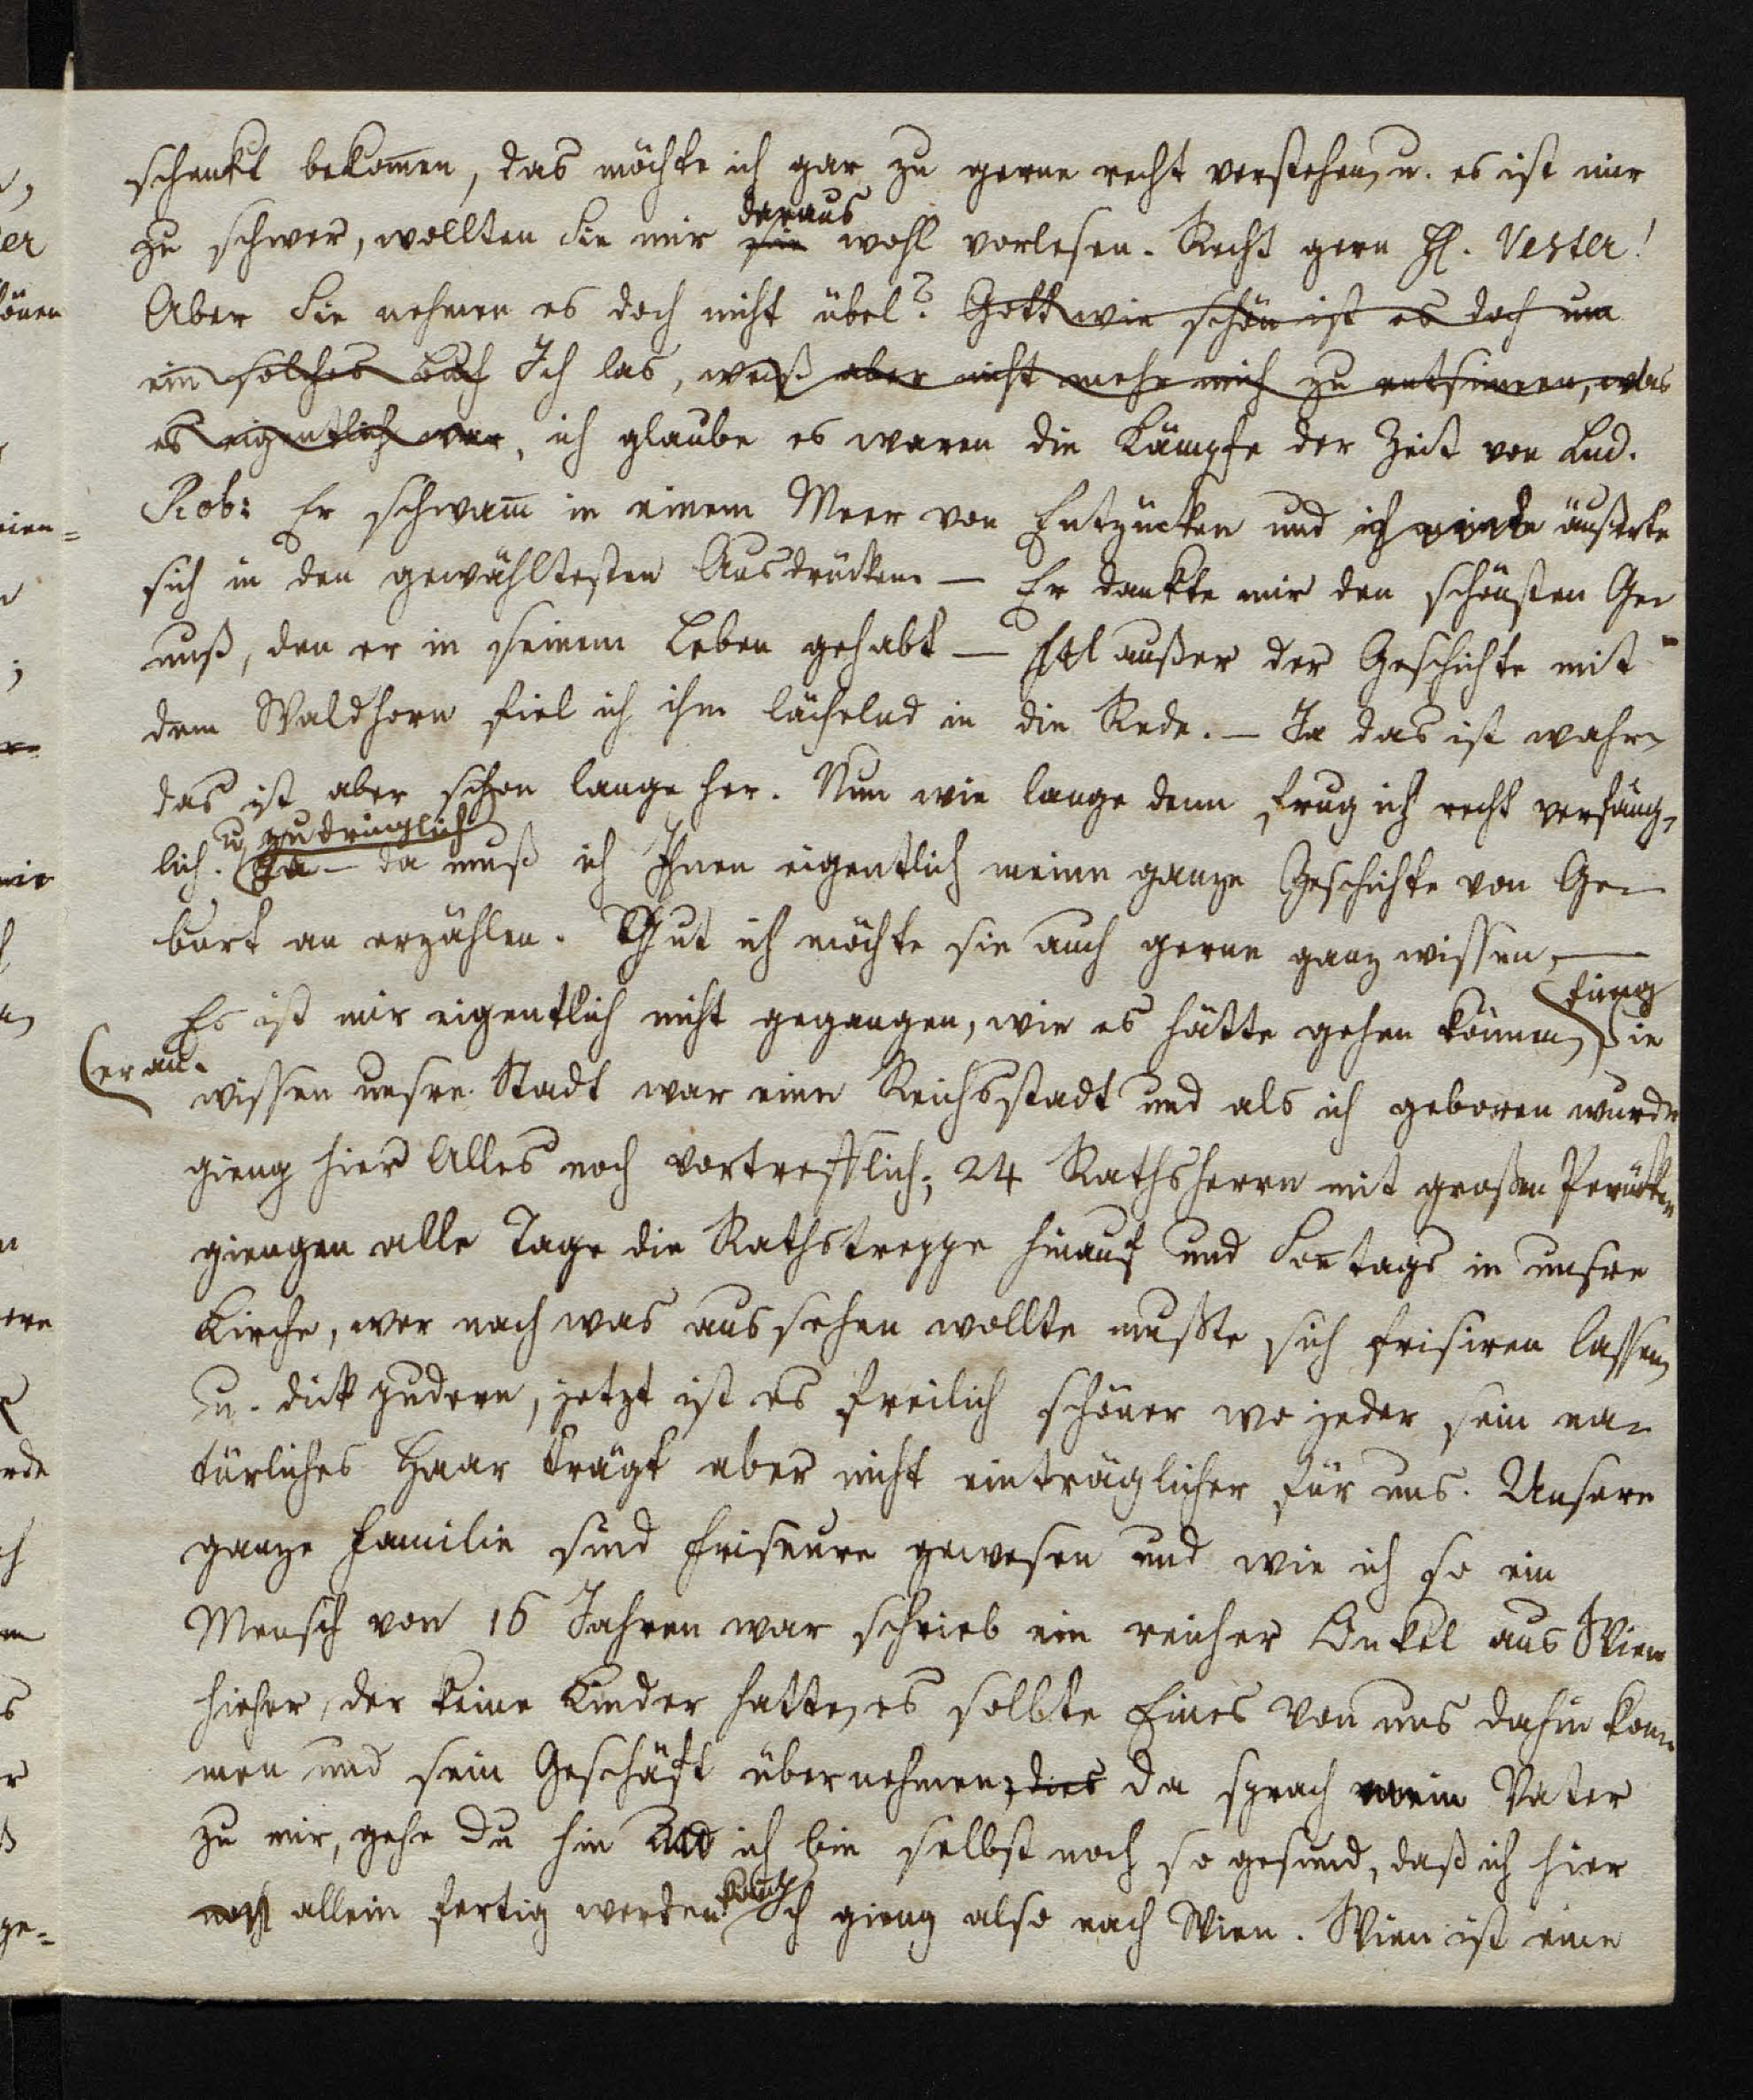 schenkt bekom̅en, das möchte ich gar zu gerne recht verstehen, u. es ist mir
daraus
zu schwer, wollten Sie mir sie wohl vorlesen. Recht gern H. Vester!
Aber Sie nehmen es doch nicht übel? Gott wie schön ist es doch um
ein solches Buch Ich las, weiß aber nicht mehr mich zu entsinnen, was
es eigentlich war, ich glaube es waren die Kämpfe der Zeit von Lud.
Rob: Er schwam̅ in einem Meer von Entzücken und ich äußerte
sich in den gewähltesten Ausdrücken. — Er dankte mir den schönsten Ge-
nuß, den er in seinem Leben gehabt — außer der Geschichte mit
dem Waldhorn fiel ich ihm lächelnd in die Rede. — Ja das ist wahr,
das ist aber schon lange her. Nun wie lange denn frug ich recht verfäng-
u. zudringlich
lich. Ja — da muß ich Ihnen eigentlich meine ganze Geschichte von Ge-
burt an erzählen. Gut ich möchte sie auch gerne ganz wissen, —
fieng
Es ist mir eigentlich nicht gegangen, wie es hätte gehen können, Sie
er an.
wissen unsre Stadt war eine Reichsstadt und als ich geboren wurde
gieng hier Alles noch vortrefflich; 24 Rathsherrn mit großen Perücken
giengen alle Tage die Rathstreppe hinauf und Son̅tags in unsre
Kirche, wer nach was aussehen wollte mußte sich frisiren lassen,
u. dick pudern, jetzt ist es freilich schöner wo jeder sein na-
türliches Haar trägt aber nicht einträglicher für uns. Unsere
ganze Familie sind Friseure gewesen und wie ich so ein
Mensch von 16 Jahren war schrieb ein reicher Onkel aus Wien
hieher, der keine Kinder hatte, es sollte Eines von uns dahin kom-
men und sein Geschäft übernehmen, dies da sprach mein Vater
zu mir, gehe Du hin und ich bin selbst noch so gesund, daß ich hier
kann,
noch allein fertig werden Ich gieng also nach Wien. Wien ist eine